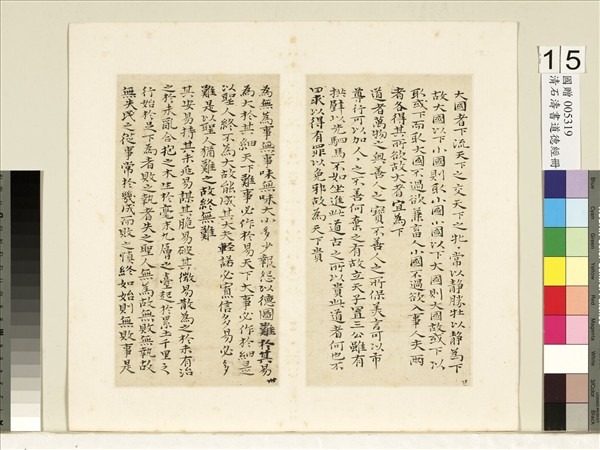 大國者下流天下之交天下之牝·常以靜勝牡以靜為下
故大國以下小國則取小國小國以下大國則大國故或下以
取或下而取大國不過欲兼畜人小國不過欲入事人夫兩
者各得其所欲故大者宜為下
道者萬物之奧善人之寶不善人之所保美言可以市
尊行可以加人·之不善何棄之有故立天子置三公雖有
拱璧以先駟馬不如坐進此道古之所以貴此道者何也不
曰求以得有罪以免邪故為天下貴
為無為事無事味無味大小多少報怨以德圖難於其易
為大於其細天下難事必作於易天下大事必作於細是
以聖人終不為大故能成其大夫輕諾必寡信多易必多
難是以聖人猶難之故終無難
其安易持其未兆易謀其脆易破其微易散為之於未有治
之於未亂合抱之木生於毫末九層之臺起於累土千里之
行始於足下為者敗之執者失之聖人無為故無敗無執故
無失民之從事常於幾成而敗之慎終如始則無敗事是
15
國贈 005319
清石濤書道德經冊
Blue
Cyan
Green
Yellow
Red
Magenta
White
3/Color
Black